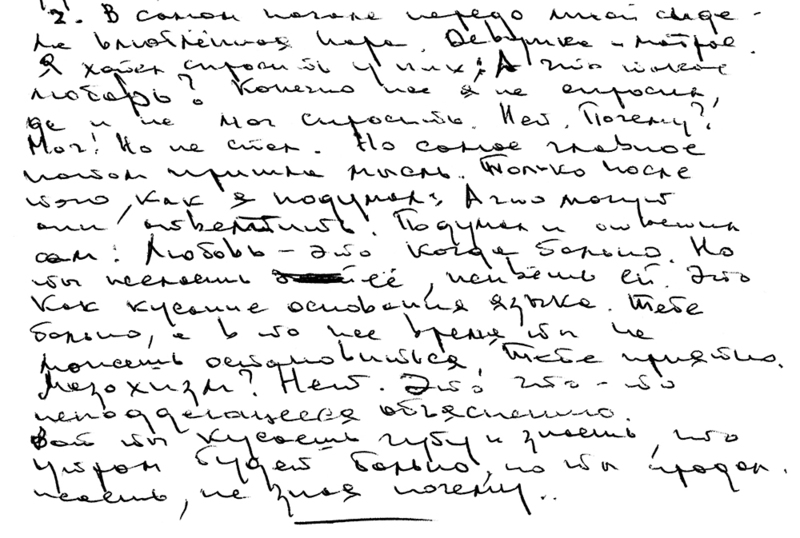 2. В самом начале передо мной сиде-
ла влюблённая пара. Девушка и матрос.
Я хотел спросить у них: А что такое
любовь? Конечно же я не спросил,
да и не мог спросить. Нет. Почему?!
Мог! Но не стал. Но самое главное
потом пришла мысль. Только после
того, как я подумал: А что могут
они ответить. Подумал и ответил
сам: Любовь – это когда больно. Но
ты желаешь её, . Это
как кусание основания языка. Тебе
больно, а в то же время ты не
можешь остановиться. Тебе приятно.
Мазохизм? Нет. Это что-то
неподдающееся объяснению.
Вот ты кусаешь губу и знаешь, что
утром будет больно, но ты продол-
жаешь, не зная почему..